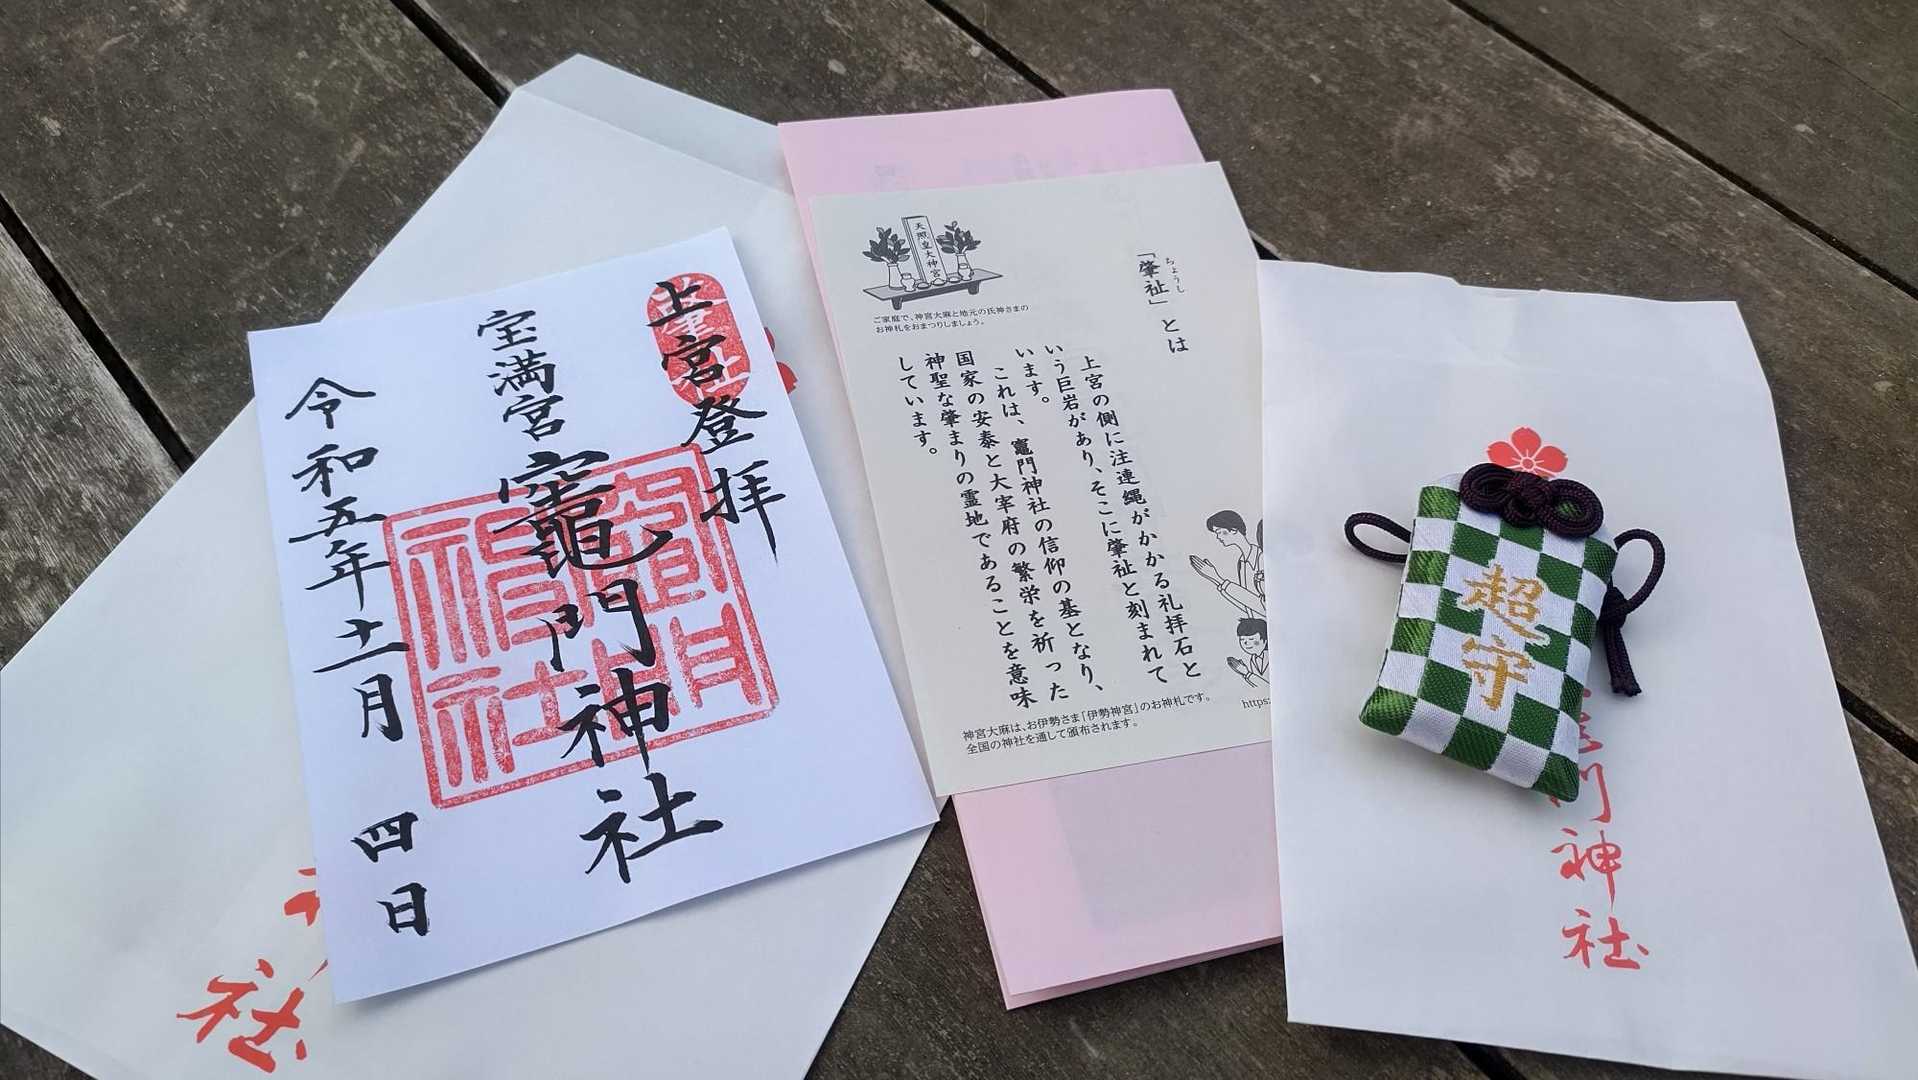 上宮登拝
肇祉
宝満宮
竈門神社
竈門神社
令和五年十一月 四日
社
天照皇大神宮
ご家庭で、神宮大麻と地元の氏神さまの
お神札をおまつりしましょう。
ちょうし
「肇祉」とは
上宮の側に注連縄がかかる礼拝石と
いう巨岩があり、そこに肇祉と刻まれて
います。
これは、竈門神社の信仰の基となり、
国家の安泰と大宰府の繁栄を祈った
神聖な肇まりの霊地であることを意味
しています。
神宮大麻は、お伊勢さま「伊勢神宮」のお神札です。
全国の神社を通して頒布されます。
https:
超守
門神社